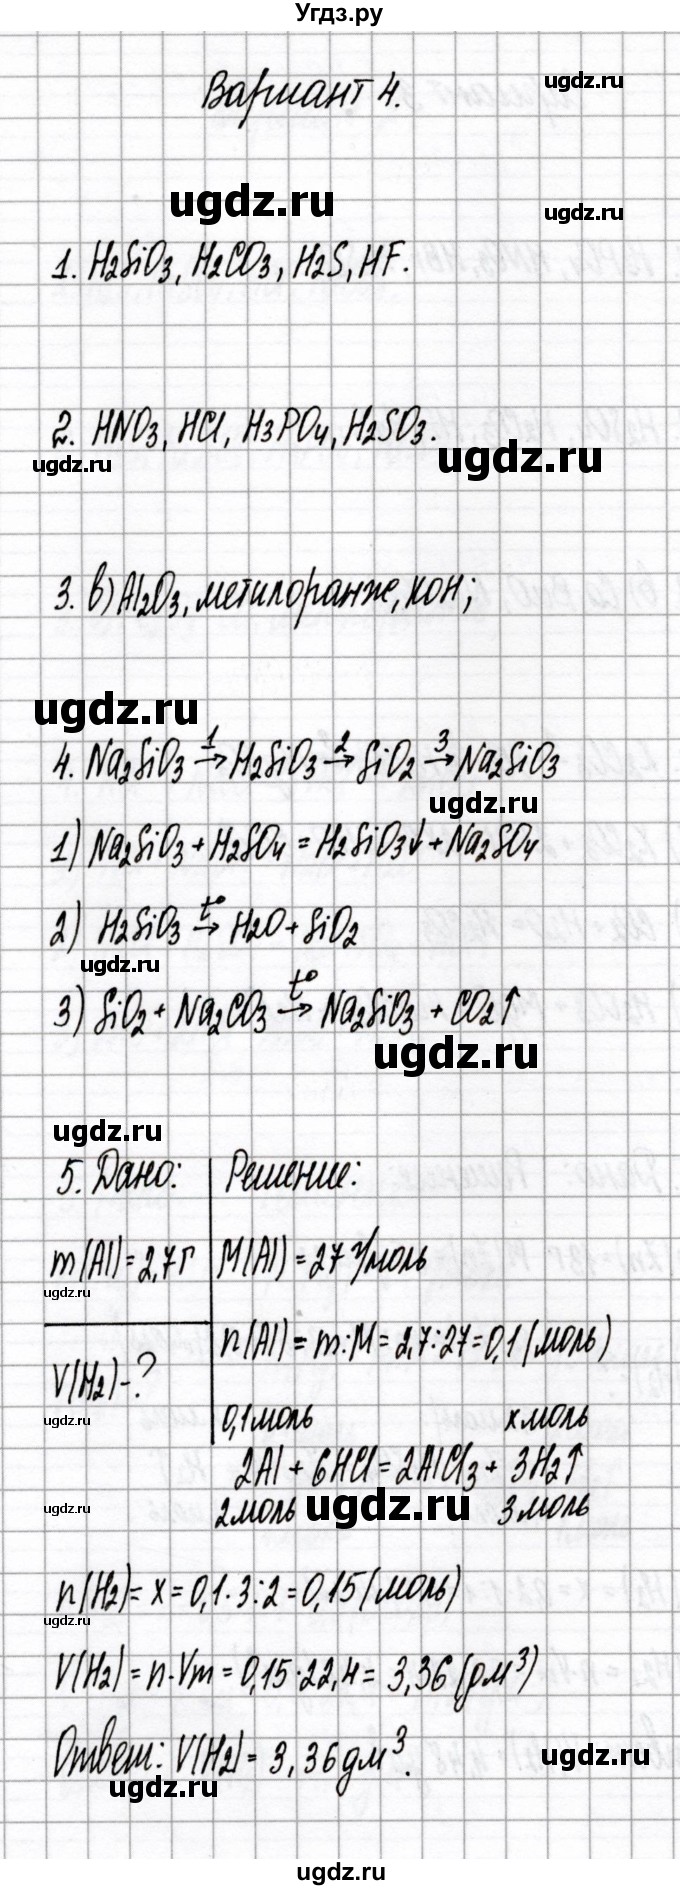 Угдз.ру
Вариант 4.
ugdz.ru
ugdz.ru
ugdz.ru
1. H2SiO3, H2CO3, H2S, HF.
2. HNO3, HCl, H3PO4, H2SO3.
ugdz.ru
ugdz.ru
3. в) Al2O3, метилоранж, KOH;
ugdz.ru
4. Na2SiO3 1→ H2SiO3 2→ SiO2 3→ Na2SiO3
ugdz.ru
1) Na2SiO3 + H2SO4 = H2SiO3↓ + Na2SO4
2) H2SiO3 t°→ H2O + SiO2
ugdz.ru
3) SiO2 + Na2CO3 t°→ Na2SiO3 + CO2↑
ugdz.ru
ugdz.ru
5. Дано:
Решение:
m(Al) = 2,7 г
M(Al) = 27 г/моль
ugdz.ru
n(Al) = m : M = 2,7 : 27 = 0,1 (моль)
V(H2) - ?
ugdz.ru
0,1 моль x моль
2Al + 6HCl = 2AlCl3 + 3H2↑
ugdz.ru
2 моль ugdz.ru 3 моль
n(H2) = x = 0,1 · 3 : 2 = 0,15 (моль)
ugdz.ru
V(H2) = n · Vm = 0,15 · 22,4 = 3,36 (дм³)
ugdz.ru
Ответ: V(H2) = 3,36 дм³.
ugdz.ru
ugdz.ru
ugdz.ru